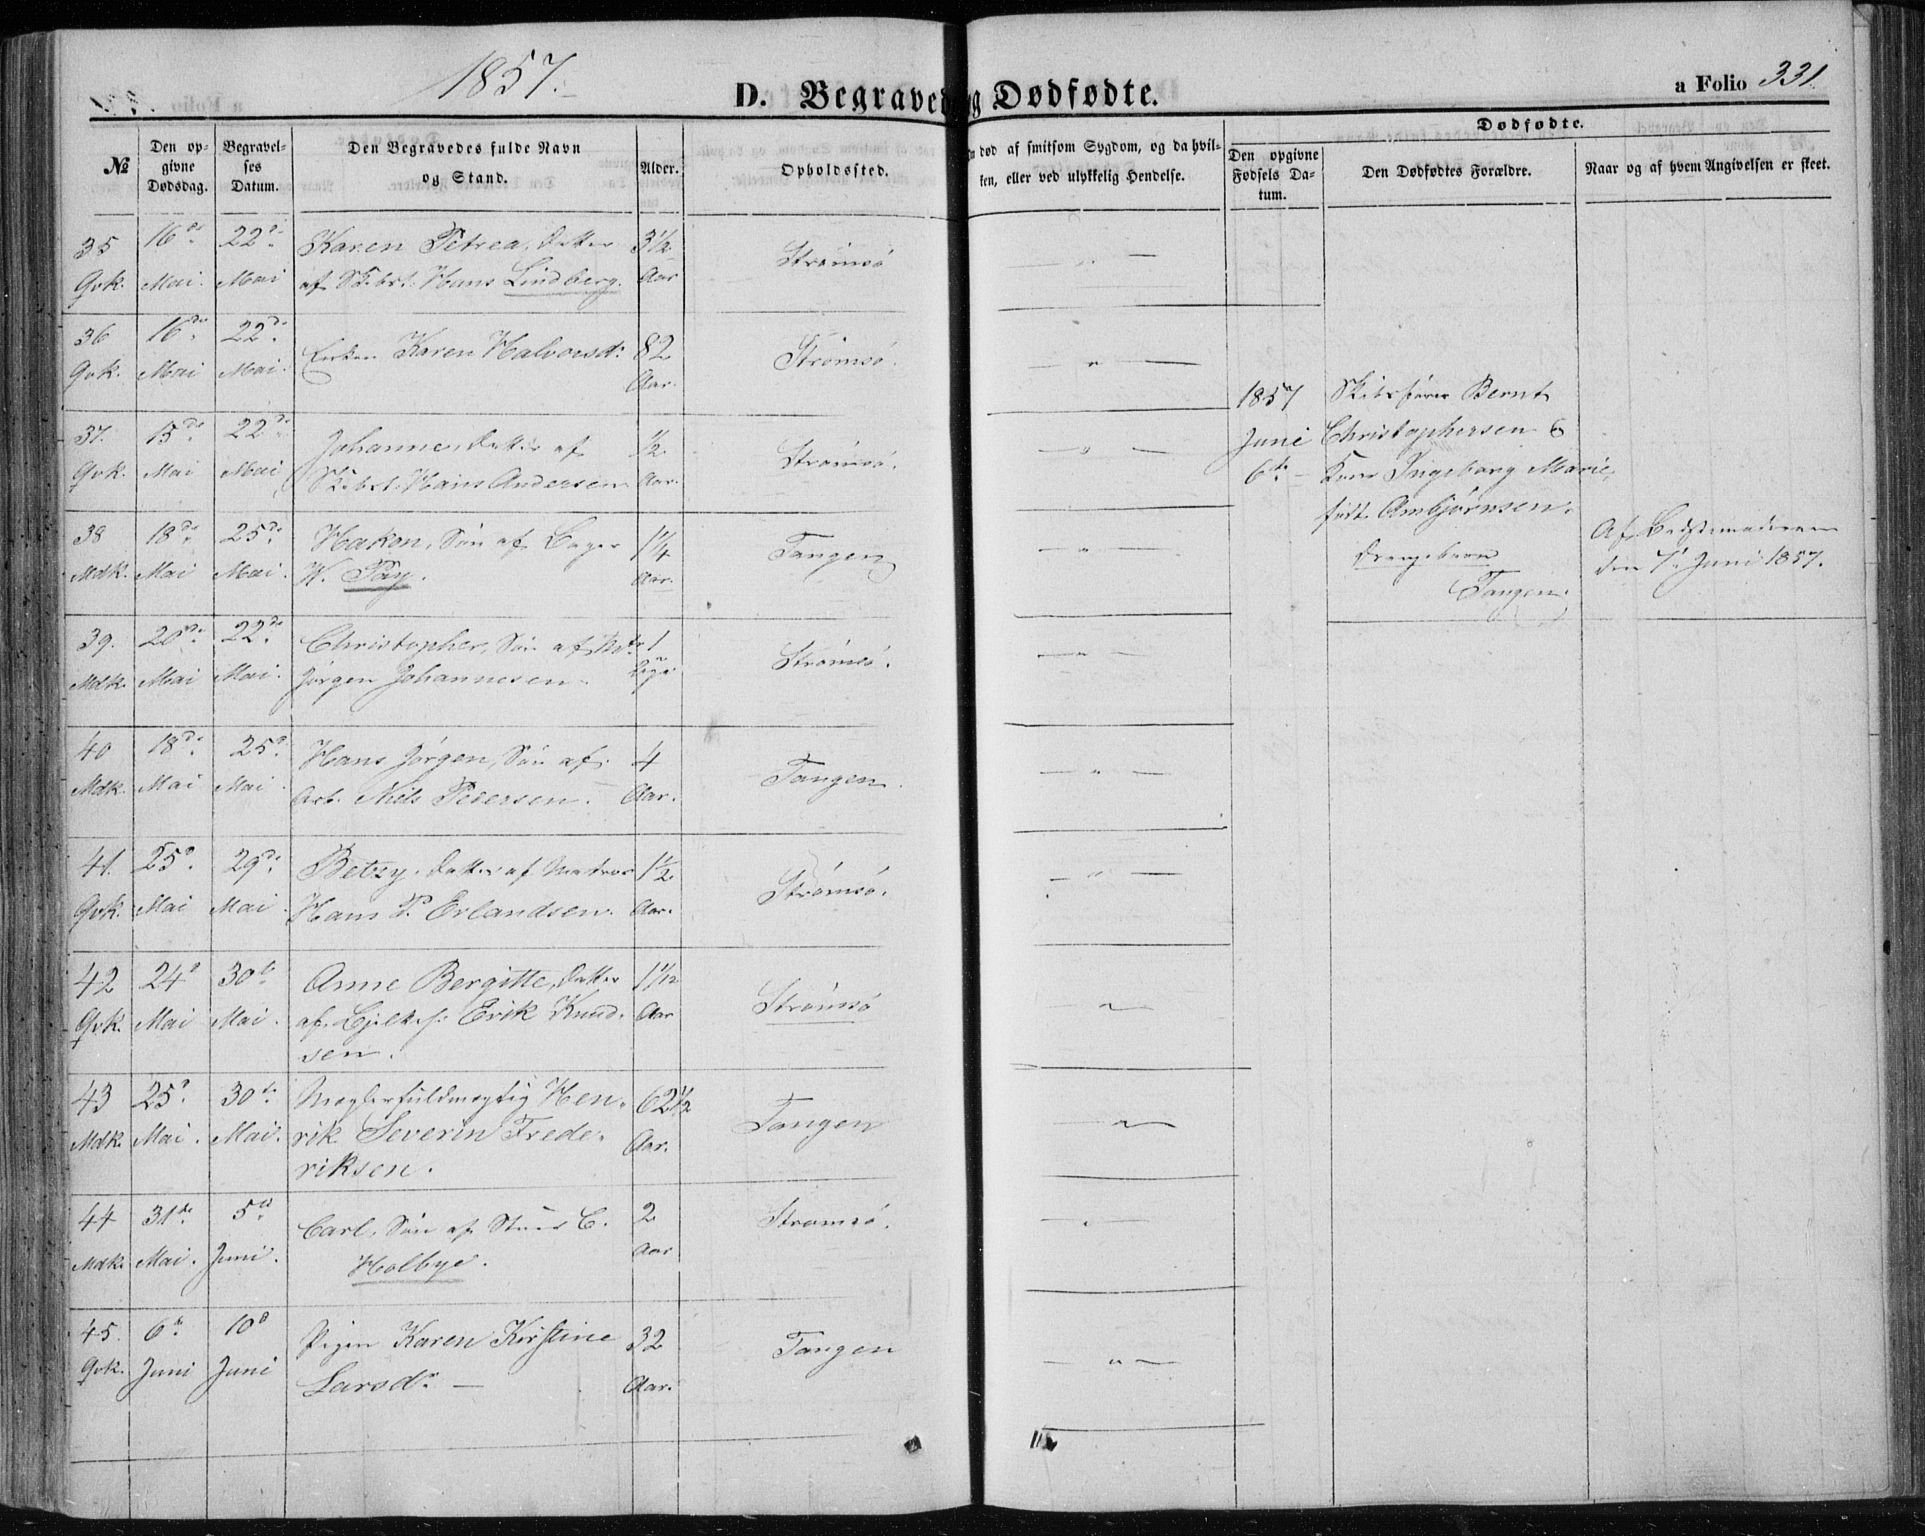 1857.
D. Begravede og Dødfødte.
a Folio 331.
№
Den op-
givne
Dødsdag.
Begravel-
ses
Datum.
Den Begravedes fulde Navn
og Stand.
Alder.
Opholdssted.
død af smitsom Sygdom, og da hvil-
ken, eller ved ulykkelig Hendelse.
Dødfødte.
Den opgivne
Fødsels Da-
tum.
Den Dødfødtes Forældre.
Naar og af hvem Angivelsen er skeet.
35 16de 22de Karen Petrea, Datter 3½ Strømsø
Qvk. Mai. Mai af Skibst. Hans Lindberg. Aar
36 16de 22de Enken Karen Halvorsd: 82 Strømsø.
Qvk. Mai Mai. Aar.
37. 15de 22de Johanne, Datter af ½ Strømsø.
Qvk. Mai Mai Skibst. Hans Andersen Aar.
38 18de 25de Hakon, Søn af Bager 1¼ Tangen
Mdk. Mai Mai. W. Pay. Aar.
39. 20de 22de Christopher, Søn af 1 Strømsø.
Mdk. Mai Mai. Jørgen Johannesen. Dage
40 18de 25de Hans Jørgen, Søn af 4 Tangen.
Mdk. Mai Mai. Arb. Niels Pedersen. Aar.
41. 25de 29de Betzy, Datter af Matros 1½ Strømsø.
Qvk. Mai Mai Hans P. Erlandsen. Aar.
42 24de 30te Anne Bergitte, Datter 1 1/12 Strømsø
Qvk. Mai Mai. af Erik Knud- Aar
sen.
43 25de 30te Mæglerfuldmægtig Hen- 62½ Tangen
Mdk. Mai. Mai. rik Severin Frede- Aar.
riksen.
44 31te 5te Carl, Søn af C. 2 Strømsø.
Mdk. Mai. Juni. Holbye. Aar
45. 6te 10de Pigen Karen Kirstine 32 Tangen
Qvk. Juni Juni Larsd: Aar.
1857 Skibsfører Bernt
Juni Christophersen &
6te Kone Ingeborg Marie,
født Ambjørnsen.
Drengebarn
Tangen.
Af Bedstemoderen
den 7de Juni 1857.